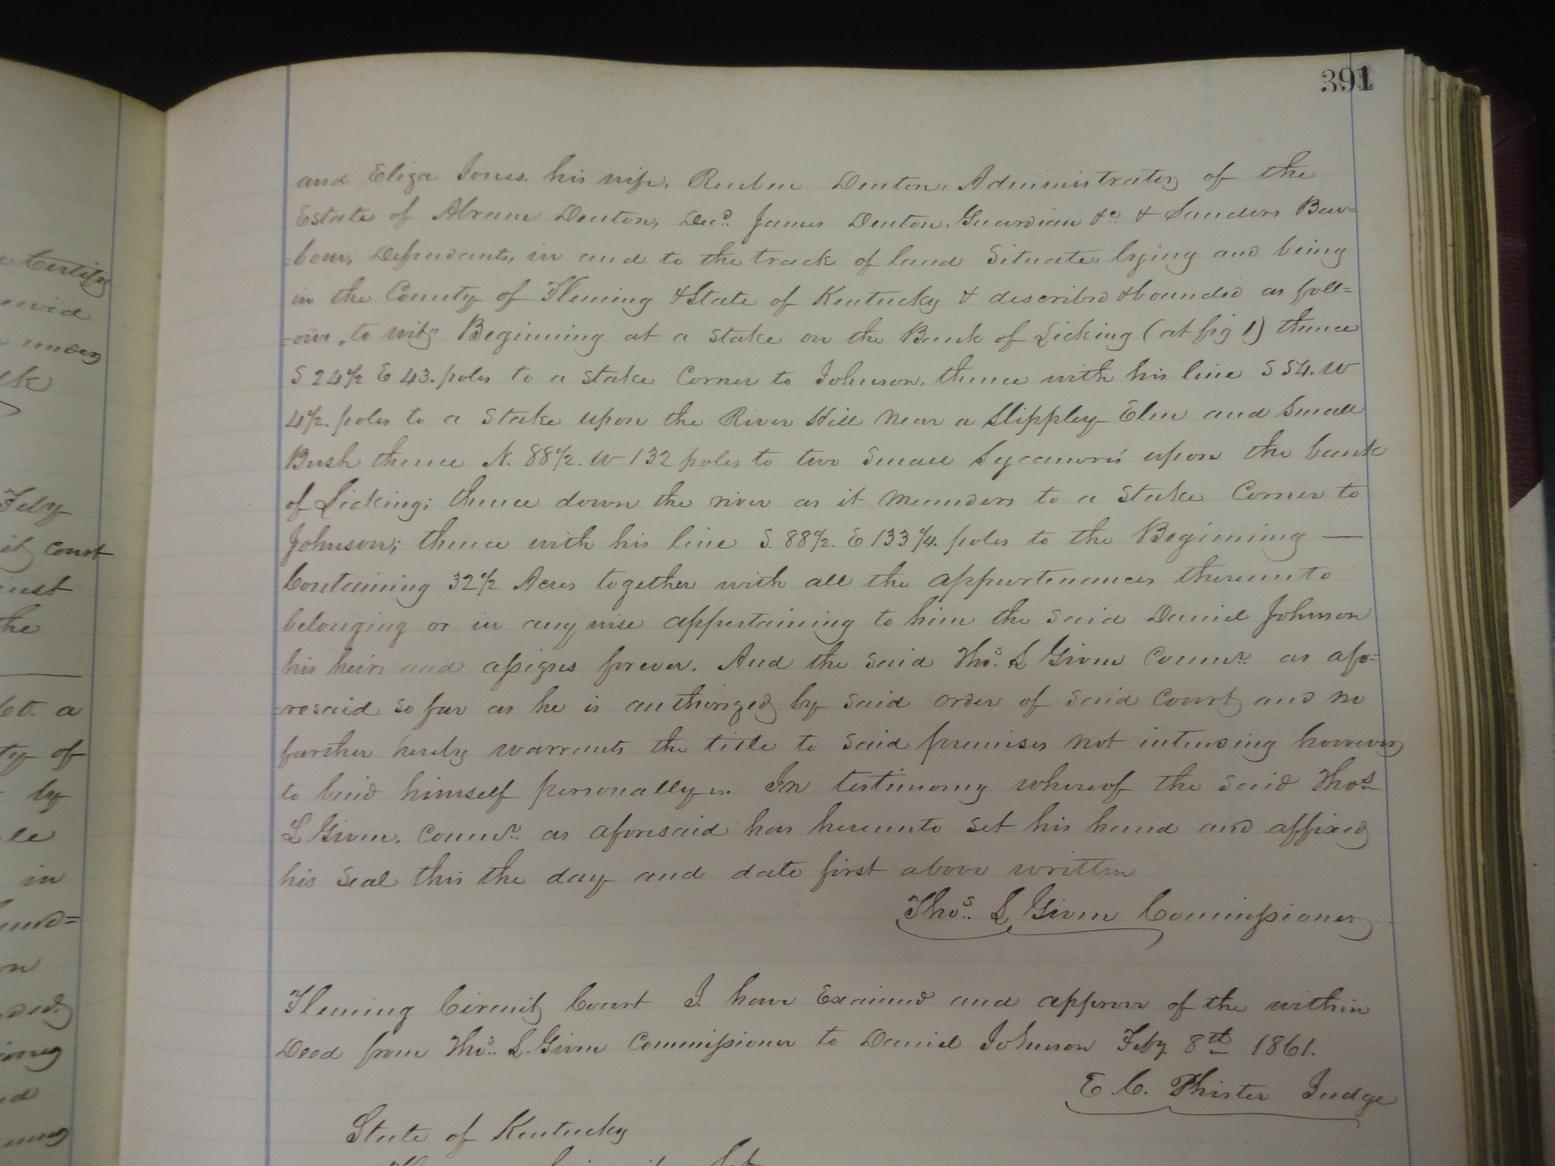 391
and Eliza Jones. his wife, Reuben Denton, Administrator of the
Estate of Abram Denton, Decd. James Denton, Guardian &c & Sanders Bar=
=bour, Defendants, in and to the track of land Situate, lying and being
in the County of Fleming & State of Kentucky & described & bounded as foll=
=ows, to wit, Beginning at a stake on the Bank of Licking (at fig 1) thence
S 24½ E 43. poles to a stake Corner to Johnson, thence with his line S 54. W
4½. poles to a stake upon the River Hill near a Slippley Elm and Small
Bush thence N. 88½. W 132 poles to two Small Sycamores upon the bank
of Licking; thence down the river as it meanders to a stake Corner to
Johnson; thence with his line S. 88½. E 133¼. poles to the Beginning —
Containing 32½ Acres together with all the appurtenances thereunto
belonging or in any wise appertaining to him the said Daniel Johnson
his heirs and assigns forever. And the said Thos. L Given Commr. as afo=
=resaid so far as he is authorized by said order of said Court and no
further hereby warrants the title to said premises not intending however
to bind himself personally. In testimony whereof the said Thos
L Given. Commr. as aforesaid has hereunto set his hand and affixed
his seal this the day and date first above written
Thos. L Given Commissioner
Fleming Circuit Court I have Examined and approve of the within
Deed from Thos. L. Given Commissioner to Daniel Johnson Feby 8th 1861.
E. C. Phister Judge
State of Kentucky
Certify
under
Feby
it court
the
a
ty of
by
in
on